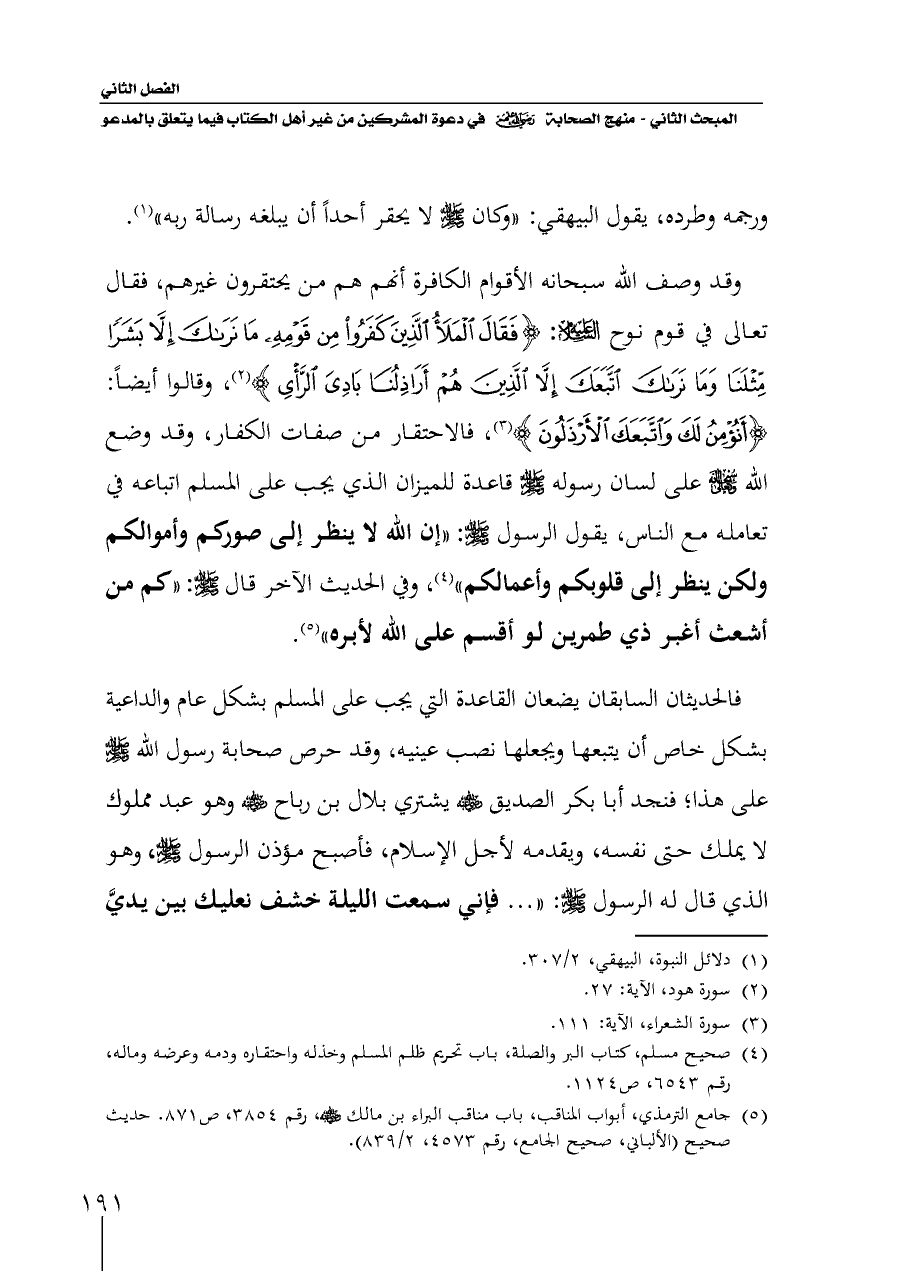 الفصل الثاني
المبحث الثاني - منهج الصحابة رضي الله عنهم في دعوة المشركين من غير أهل الكتاب فيما يتعلق بالمدعو
ورجمه وطرده، يقول البيهقي: «وكان ﷺ لا يحقر أحداً أن يبلغه رسالة ربه»(١).
وقد وصف الله سبحانه الأقوام الكافرة أنهم هم من يحتقرون غيرهم، فقال
تعالى في قوم نوح عليه السلام: ﴿فَقَالَ ٱلْمَلَأُ ٱلَّذِينَ كَفَرُوا۟ مِن قَوْمِهِۦ مَا نَرَىٰكَ إِلَّا بَشَرًا
مِّثْلَنَا وَمَا نَرَىٰكَ ٱتَّبَعَكَ إِلَّا ٱلَّذِينَ هُمْ أَرَاذِلُنَا بَادِىَ ٱلرَّأْىِ﴾(٢)، وقالوا أيضاً:
﴿أَنُؤْمِنُ لَكَ وَٱتَّبَعَكَ ٱلْأَرْذَلُونَ﴾(٣)، فالاحتقار من صفات الكفار، وقد وضع
الله على لسان رسوله ﷺ قاعدة للميزان الذي يجب على المسلم اتباعه في
تعامله مع الناس، يقول الرسول ﷺ: «إن الله لا ينظر إلى صوركم وأموالكم
ولكن ينظر إلى قلوبكم وأعمالكم»(٤)، وفي الحديث الآخر قال ﷺ: «كم من
أشعث أغبر ذي طمرين لو أقسم على الله لأبره»(٥).
فالحديثان السابقان يضعان القاعدة التي يجب على المسلم بشكل عام والداعية
بشكل خاص أن يتبعها ويجعلها نصب عينيه، وقد حرص صحابة رسول الله ﷺ
على هذا؛ فنجد أبا بكر الصديق رضي الله عنه يشتري بلال بن رباح رضي الله عنه وهو عبد مملوك
لا يملك حتى نفسه، ويقدمه لأجل الإسلام، فأصبح مؤذن الرسول ﷺ، وهو
الذي قال له الرسول ﷺ: «... فإني سمعت الليلة خشف نعليك بين يديَّ
(١) دلائل النبوة، البيهقي، ٣٠٧/٢.
(٢) سورة هود، الآية: ٢٧.
(٣) سورة الشعراء، الآية: ١١١.
(٤) صحيح مسلم، كتاب البر والصلة، باب تحريم ظلم المسلم وخذله واحتقاره ودمه وعرضه وماله،
رقم ٦٥٤٣، ص١١٢٤.
(٥) جامع الترمذي، أبواب المناقب، باب مناقب البراء بن مالك رضي الله عنه، رقم ٣٨٥٤، ص٨٧١. حديث
صحيح (الألباني، صحيح الجامع، رقم ٤٥٧٣، ٨٣٩/٢).
١٩١